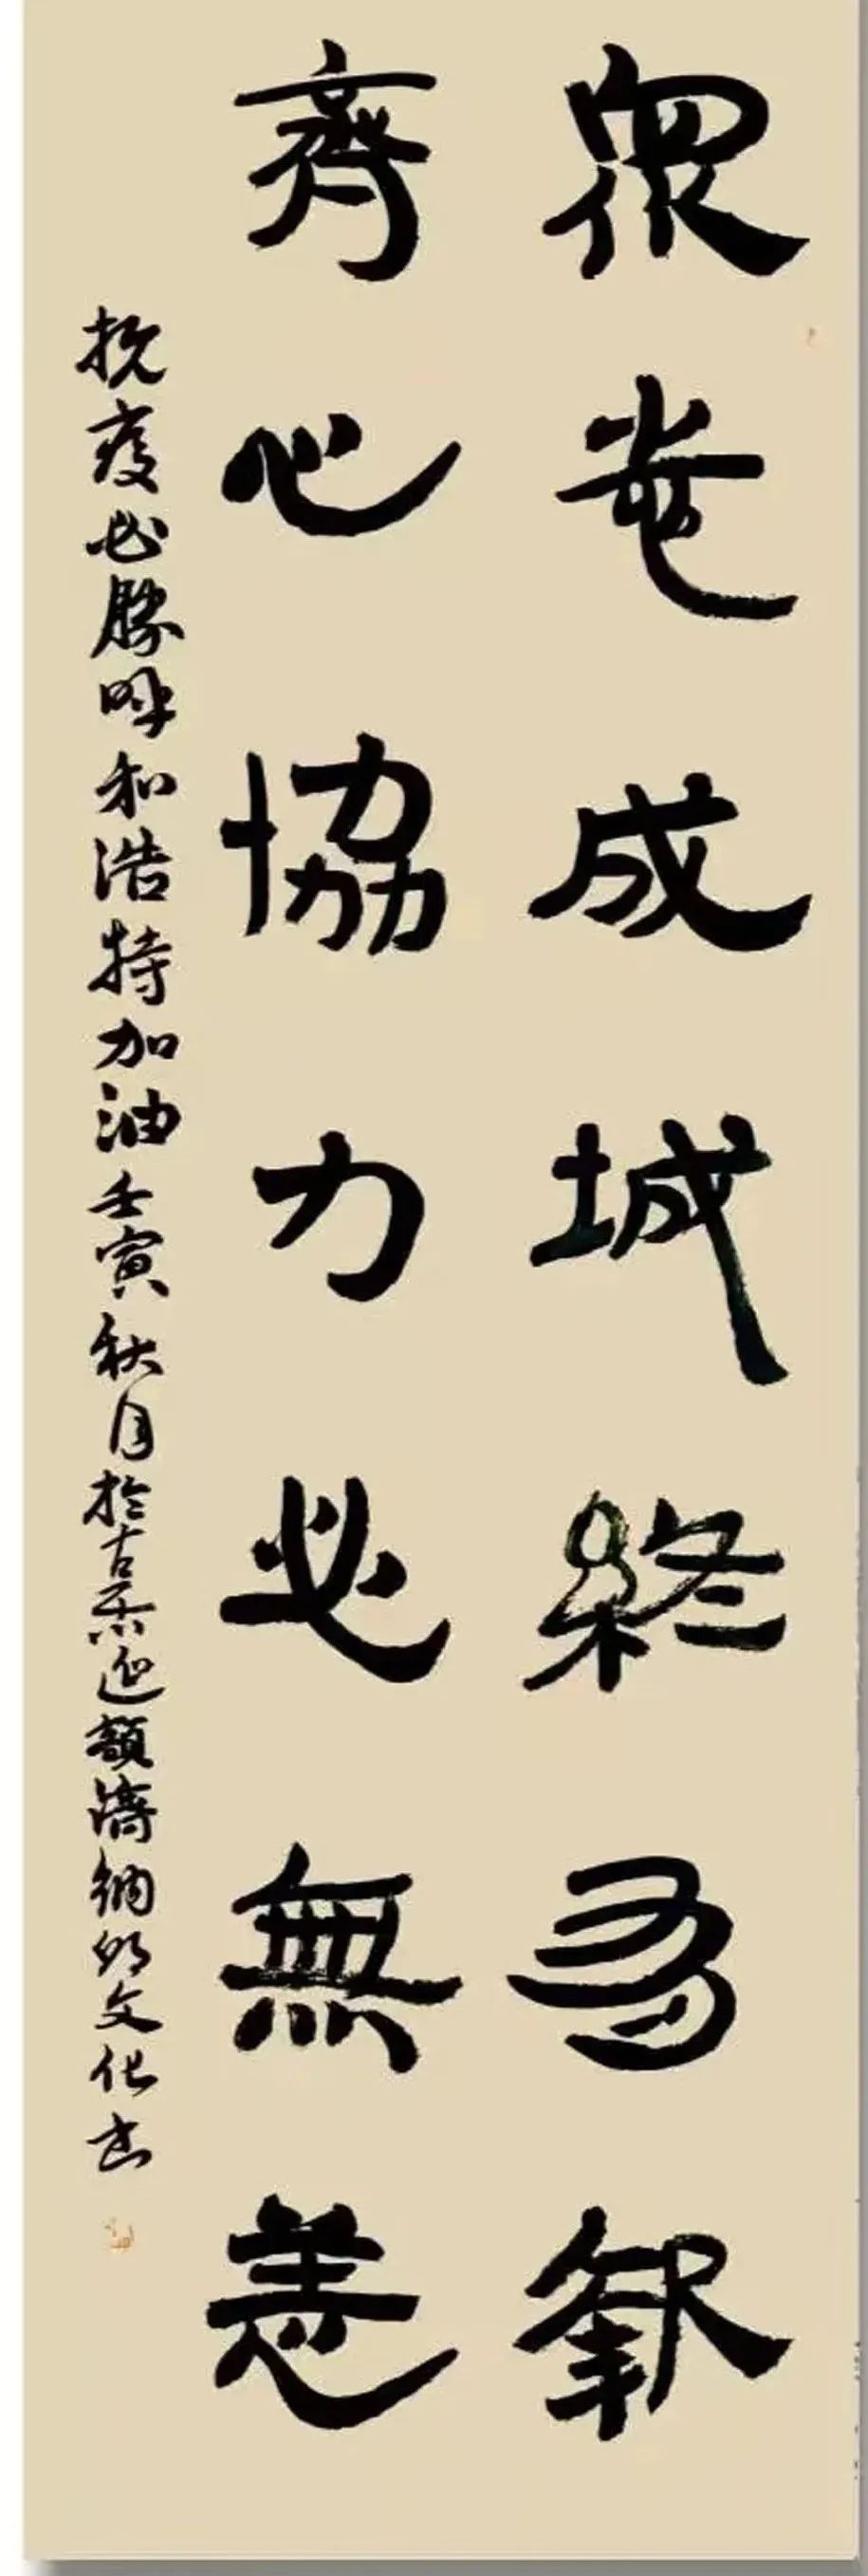 眾志成城終有報
齊心協力必無恙
抗疫必勝呼和浩特加油壬寅秋月於古居延額濟納文化書